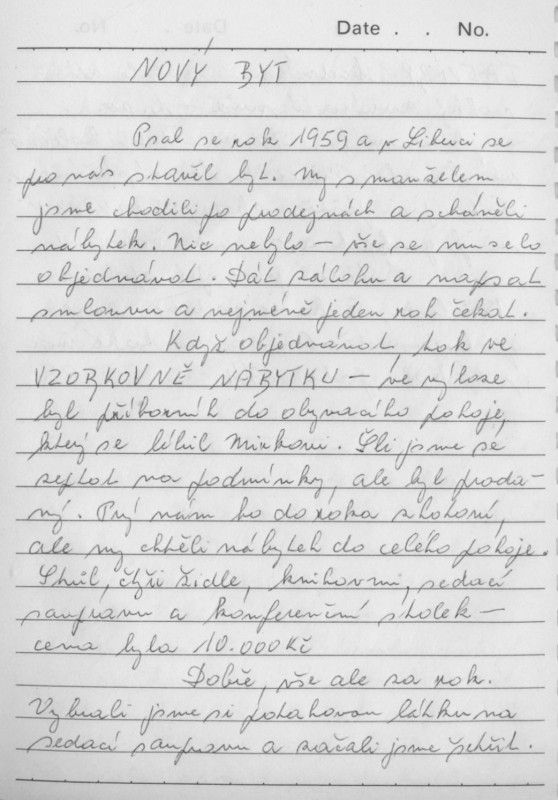 Date . . No.
NOVÝ BYT
Psal se rok 1959 a v Liberci se
pro nás stavěl byt. My s manželem
jsme chodili po prodejnách a scháněli
nábytek. Nic nebylo – vše se muselo
objednávat. Dát zálohu a napsat
smlouvu a nejméně jeden rok čekat.
Když objednávat, tak ve
VZORKOVNĚ NÁBYTKU – ve výloze
byl příborník do obývacího pokoje,
který se líbil Mirkovi. Šli jsme se
zeptat na podmínky, ale byl proda-
ný. Prý nám ho do roka zhotoví,
ale my chtěli nábytek do celého pokoje.
Stůl, čtyři židle, knihovnu, sedací
soupravu a konferenční stolek –
cena byla 10.000 Kč
Dobře, vše ale za rok.
Vybrali jsme si potahovou látku na
sedací soupravu a začali jsme šetřit.